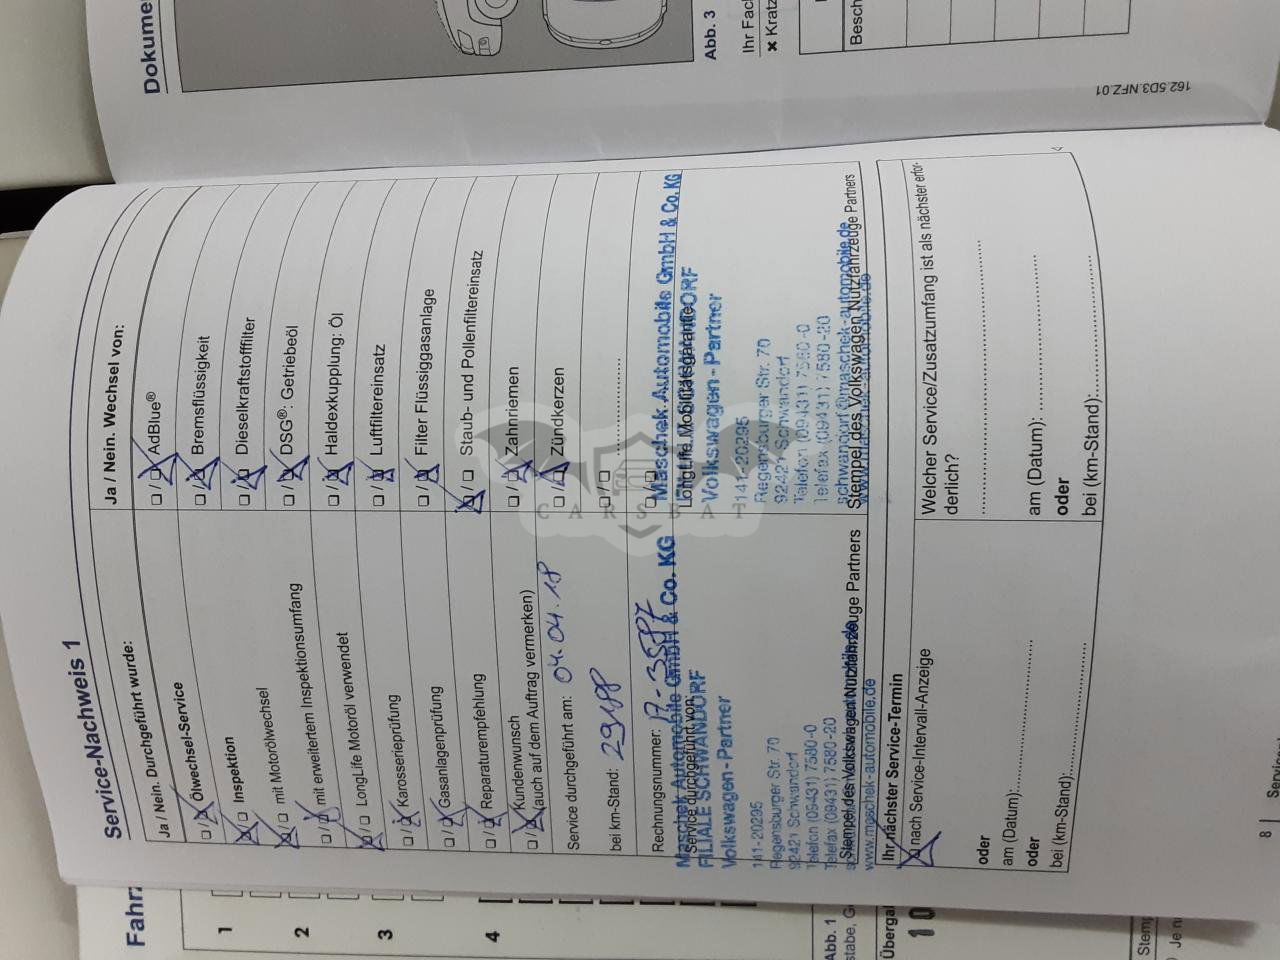 Dokume
Abb. 3
Ihr Fac
✖ Kratz
Besch
162.5D3.NFZ.01
Service-Nachweis 1
Ja / Nein. Durchgeführt wurde:
☐ / ☐ Ölwechsel-Service
☐ / ☐ Inspektion
☐ / ☐ mit Motorölwechsel
☐ / ☐ mit erweitertem Inspektionsumfang
☐ / ☐ LongLife Motoröl verwendet
☐ / ☐ Karosserieprüfung
☐ / ☐ Gasanlagenprüfung
☐ / ☐ Reparaturempfehlung
☐ / ☐ Kundenwunsch
(auch auf dem Auftrag vermerken)
Service durchgeführt am: 04.04.18
bei km-Stand:
Rechnungsnummer:
Service durchgeführt von:
Maschek Automobile GmbH & Co. KG
FILIALE SCHWANDORF
Volkswagen-Partner
141-20295
Regensburger Str. 70
92421 Schwandorf
Telefon (09431) 7580-0
Telefax (09431) 7580-20
Stempel des Volkswagen Nutzfahrzeuge Partners
www.maschek-automobile.de
Ja / Nein. Wechsel von:
☐ / ☐ AdBlue®
☐ / ☐ Bremsflüssigkeit
☐ / ☐ Dieselkraftstofffilter
☐ / ☐ DSG®: Getriebeöl
☐ / ☐ Haldexkupplung: Öl
☐ / ☐ Luftfiltereinsatz
☐ / ☐ Filter Flüssiggasanlage
☐ / ☐ Staub- und Pollenfiltereinsatz
☐ / ☐ Zahnriemen
☐ / ☐ Zündkerzen
☐ / ☐ ....................
☐ / ☐
LongLife Mobilitätsgarantie
Maschek Automobile GmbH & Co. KG
Volkswagen-Partner
141-20295
Regensburger Str. 70
92421 Schwandorf
Telefon (09431) 7580-0
Telefax (09431) 7580-20
schwandorf@maschek-automobile.de
Stempel des Volkswagen Nutzfahrzeuge Partners
www.maschek-automobile.de
Ihr nächster Service-Termin
☐ nach Service-Intervall-Anzeige
oder
am (Datum):....................
oder
bei (km-Stand):....................
Welcher Service/Zusatzumfang ist als nächster erfor-
derlich?
....................
am (Datum): ....................
oder
bei (km-Stand):....................
8
CARSBAT
Fahrz
1
2
3
4
Abb. 1
stabe, G
Überga
1 0
Stemp
Je n